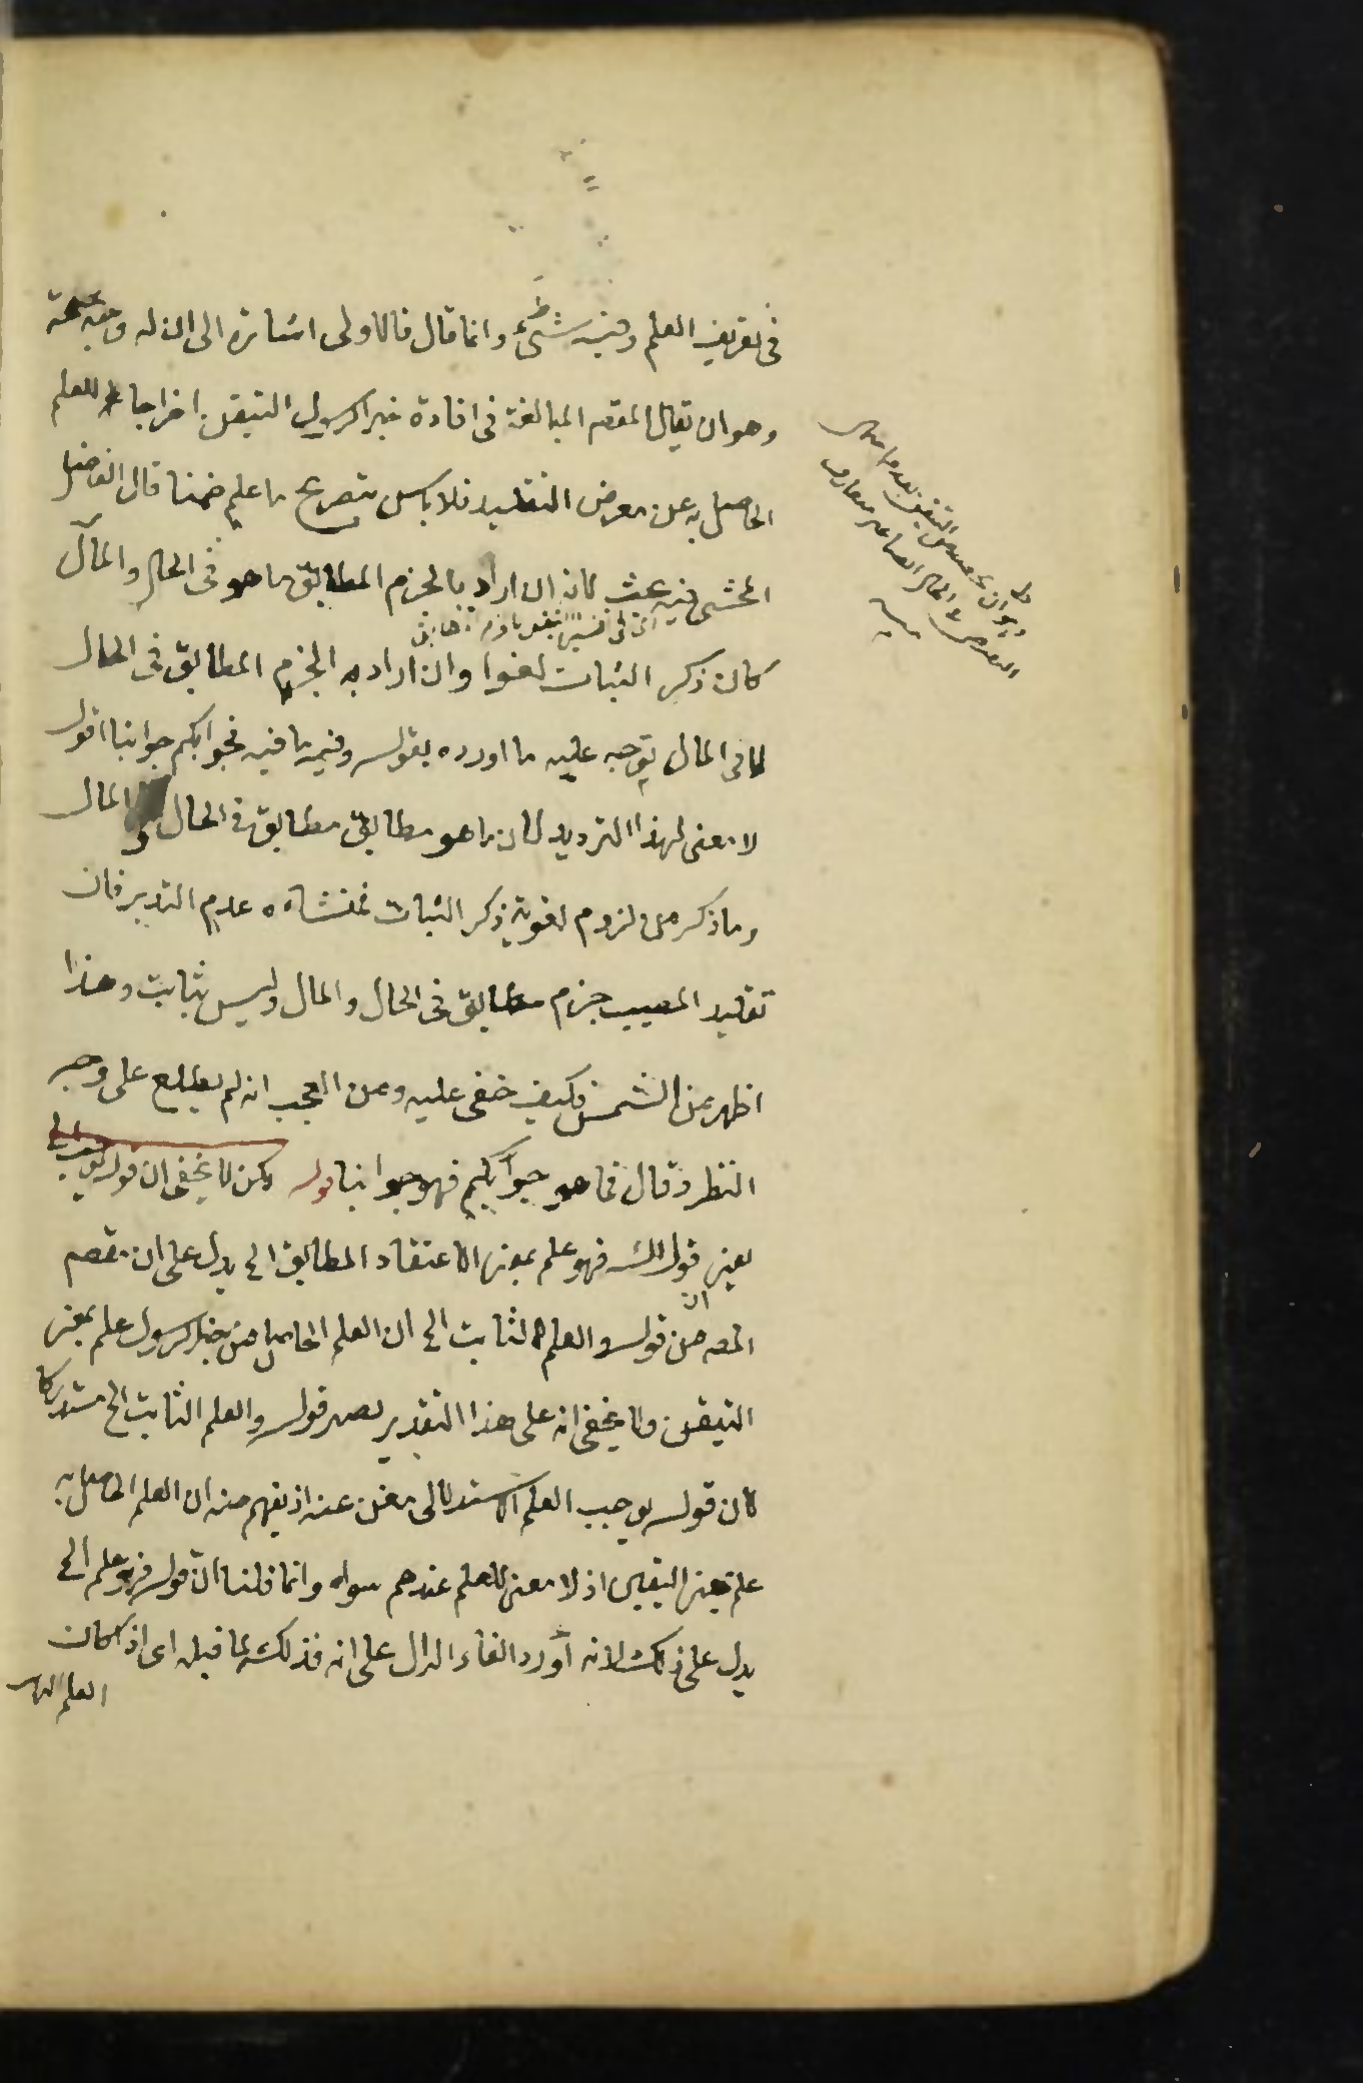 في تعريف العلم وفيه شيء وانما قال فالاولى اشارة الى ان له وجه صحة
وهو ان يقال المقصد المبالغة في افادة خبر الرسول التيقن اخراجا للعلم
الحاصل به عن معرض التقليد فلا باس بتصريح ما علم ضمنا قال الفاضل
المحشي فيه بحث لانه ان اراد بالجزم المطابق ما هو في الحال والمآل
كان ذكر الثبات لغوا وان اراد به الجزم المطابق في الحال
لا في المال يتوجه عليه ما اورده بقوله وفيه ما فيه فجوابكم جوابنا اقول
لا معنى لهذا الترديد لان ما هو مطابق مطابق في الحال والمال
وما ذكر من لزوم لغوية ذكر الثبات فمنشاءه عدم التدبر فان
تقليد المصيب جزم مطابق في الحال والمال وليس بثابت وهذا
اظهر من الشمس فكيف خفي عليه ومن العجب انه لم يطلع على وجه
النظر وقال فما هو جوابكم فهو جوابنا قوله ولكن لا يخفى ان قوله
يعني ان قول الش فهو علم بمعنى الاعتقاد المطابق الخ يدل على ان مقصد
المص من قوله والعلم الثابت الخ ان العلم الحاصل من خبر الرسول علم بمعنى
التيقن ولا يخفى انه على هذا التقدير يصير قوله والعلم الثابت الخ مستدركا
لان قوله يوجب العلم الاستدلالي مغن عنه اذ يفهم منه ان العلم الحاصل به
علم بمعنى اليقين اذ لا معنى للعلم عندهم سواه وانما قلنا ان قوله فهو علم الخ
يدل على ذلك لانه أورد الفاء الدال على انه فذلكة لما قبله اى اذا كان
العلم